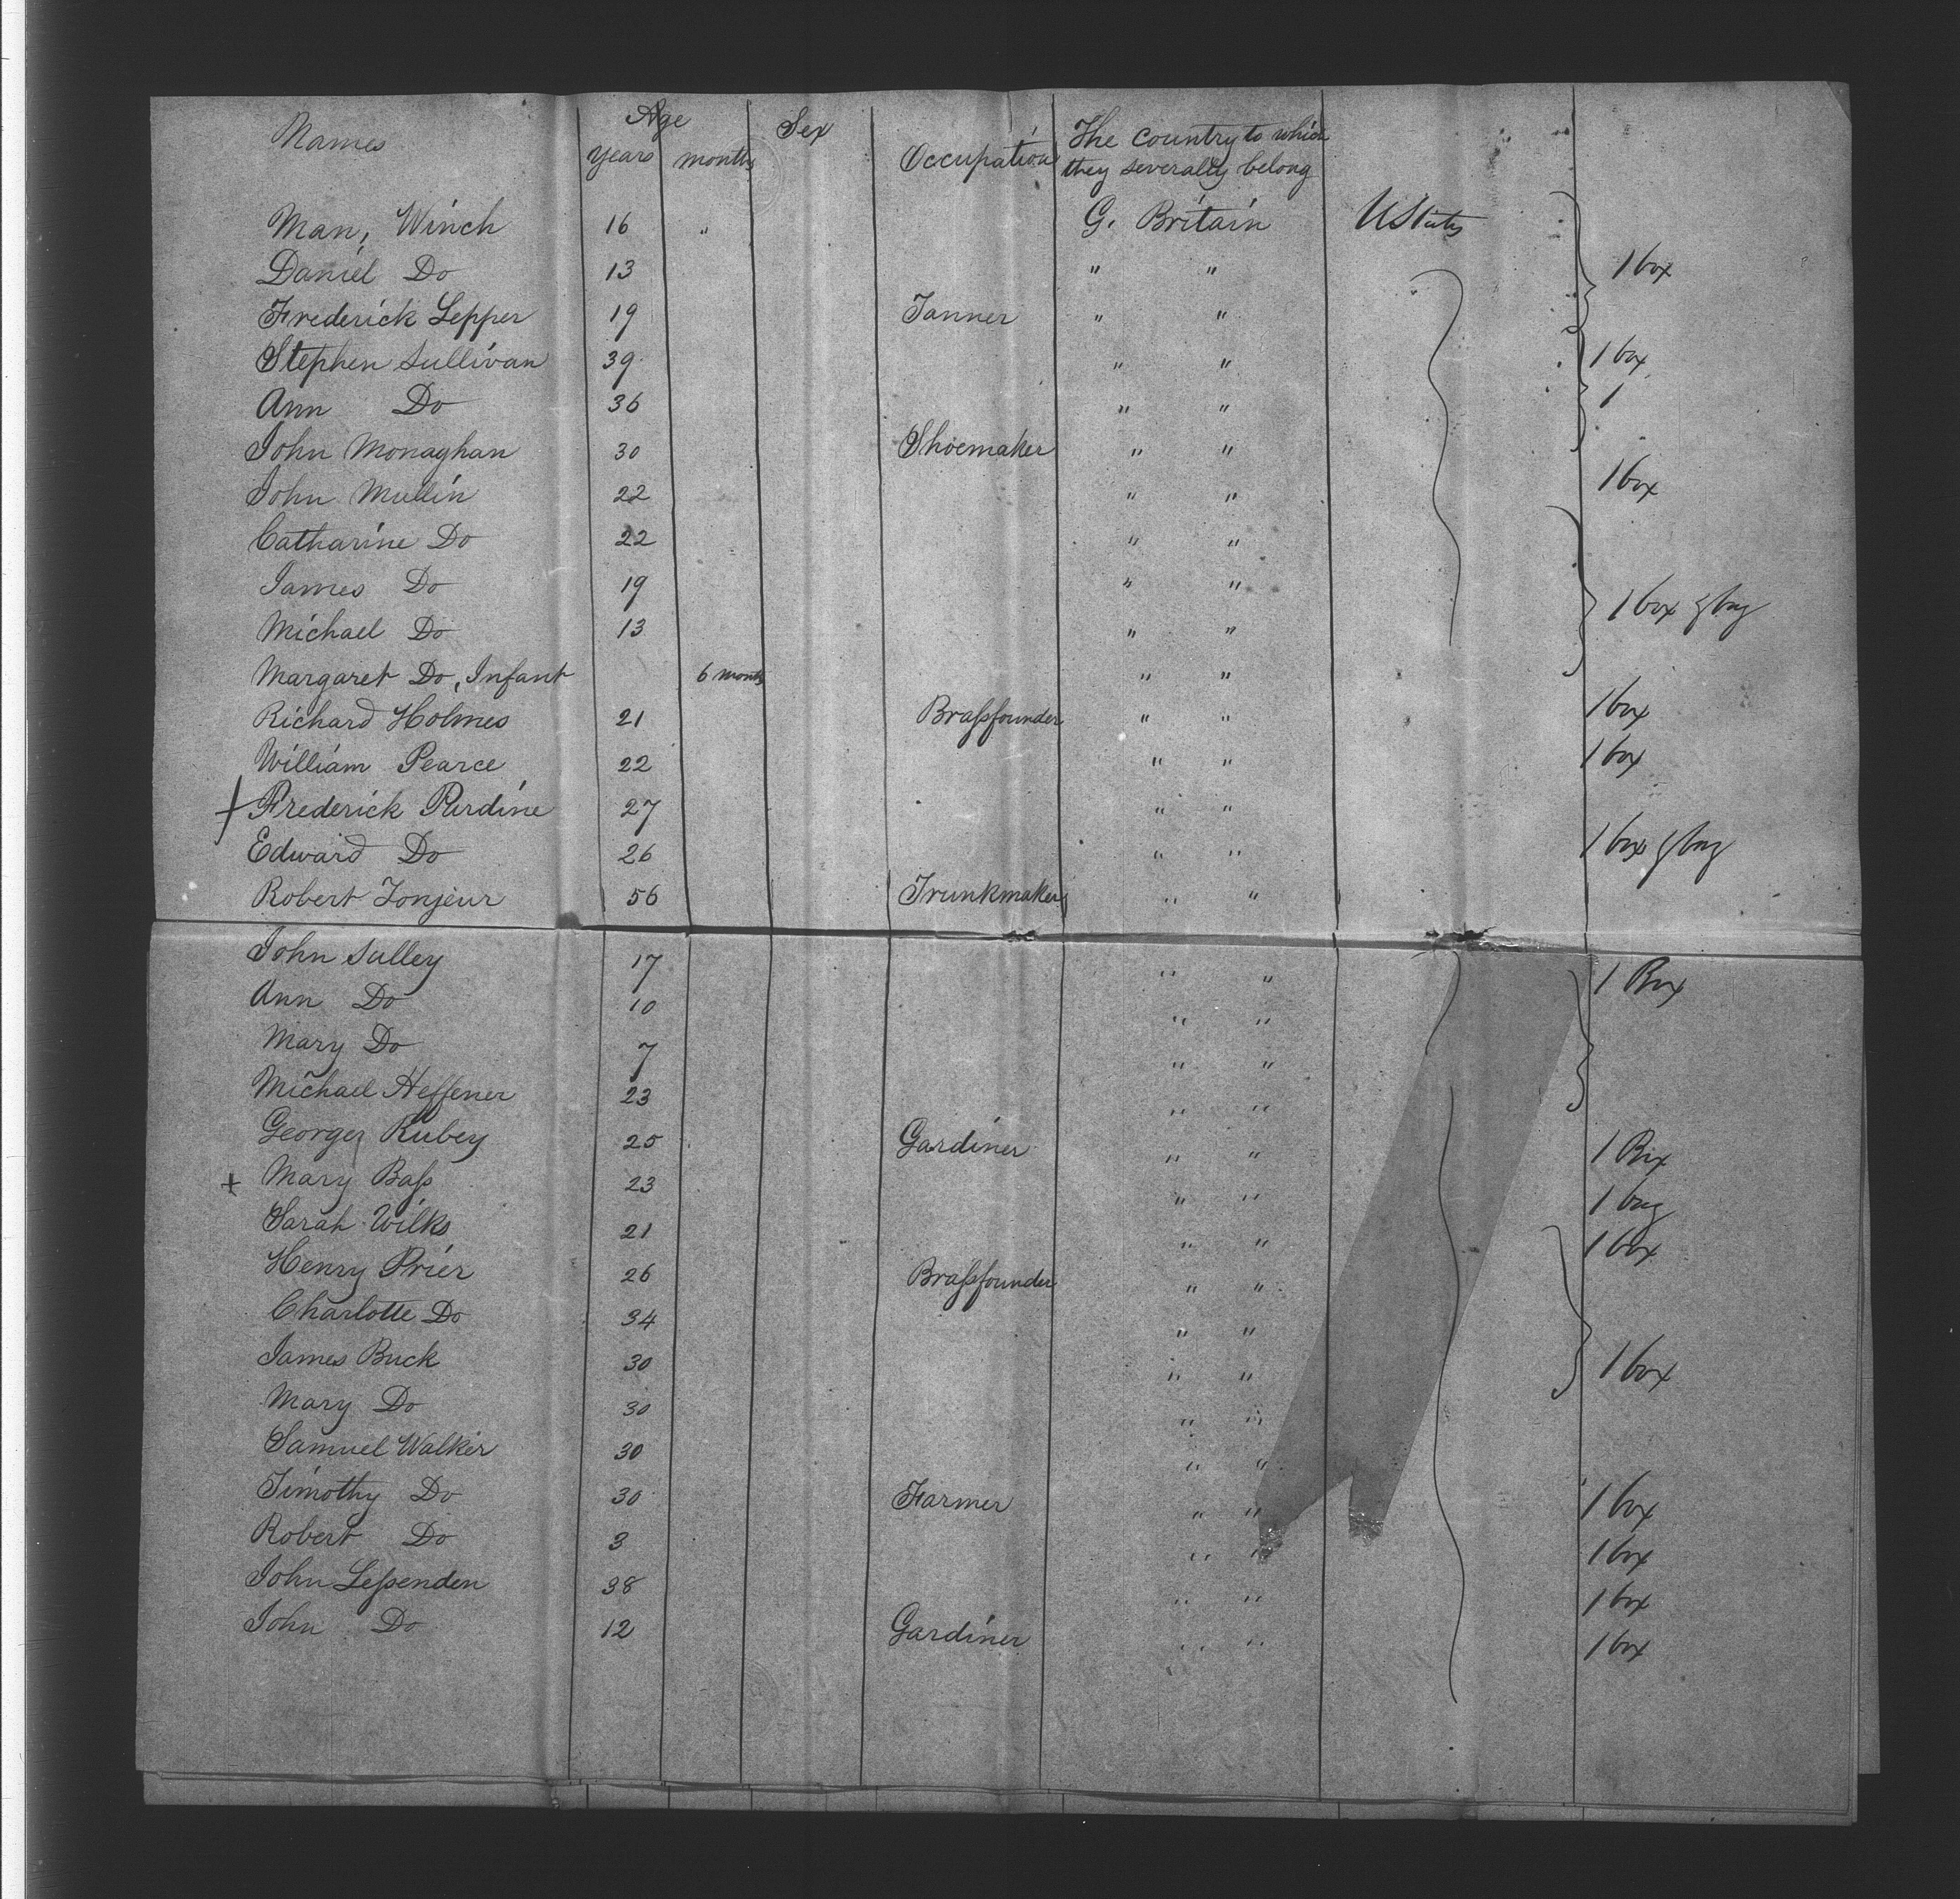 Names Age Sex Occupation The Country to which
years months they severally belong
Man, Winch 16 " G. Britain UStates
Daniel Do 13 " " 1 box
Frederick Lepper 19 Tanner " "
Stephen Sullivan 39 " " 1 box
Ann Do 36 " " 1
John Monaghan 30 Shoemaker " "
John Mullin 22 " " 1 box
Catharine Do 22 " "
James Do 19 " " 1 box & bag
Michael Do 13 " "
Margaret Do, Infant 6 months " "
Richard Holmes 21 Brassfounder " " 1 box
William Pearce 22 " " 1 box
+ Frederick Purdine 27 " "
Edward Do 26 " " 1 box & bag
Robert 56 Trunkmaker " "
John Sulley 17 " " 1 Box
Ann Do 10 " "
Mary Do 7 " "
Michael Heffener 23 " "
George Rubey 25 Gardiner " " 1 Box
+ Mary Bass 23 " " 1 bag
Sarah Wilks 21 " " 1 box
Henry Prier 26 Brassfounder " "
Charlotte Do 34 " "
James Buck 30 " " 1 box
Mary Do 30 " "
Samuel Walker 30 " "
Timothy Do 30 Farmer " " 1 box
Robert Do 3 " " 1 box
John Lessenden 38 " " 1 box
John Do 12 Gardiner " " 1 box